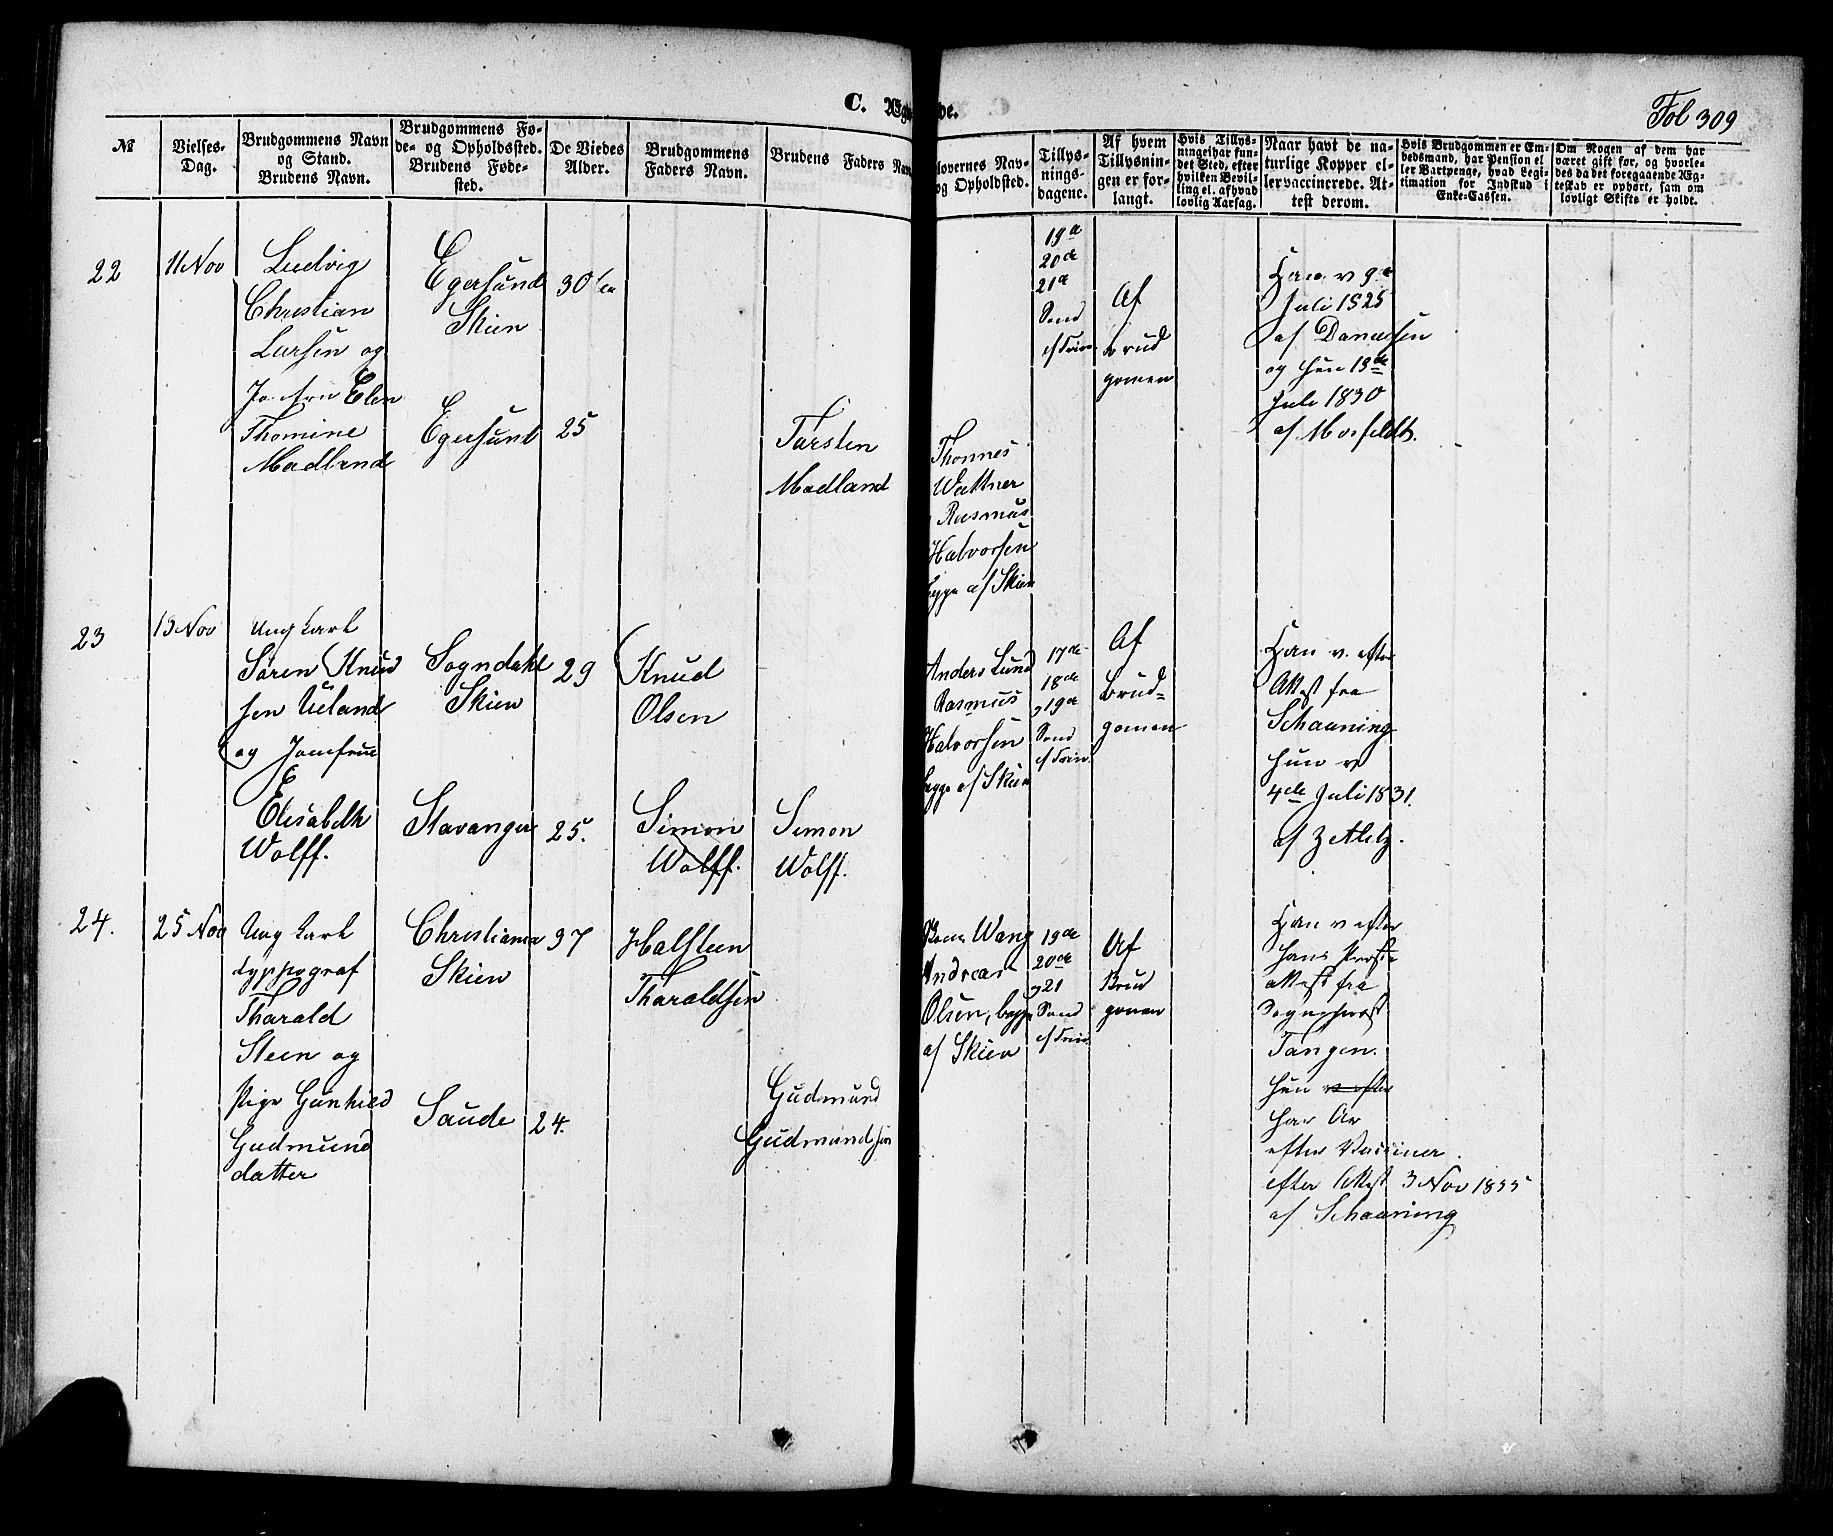 C. Ægte
de.
Fol 309
№
Vielses-
Dag.
Brudgommens Navn
og Stand.
Brudens Navn.
Brudgommens Fø-
de- og Opholdssted.
Brudens Føde-
sted.
De Viedes
Alder.
Brudgommens
Faders Navn.
Brudens Faders Navn
lovernes Nav-
og Opholdsted.
Tillys-
nings-
dagene.
Af hvem
Tillysnin-
gen er for-
langt.
Hvis Tillys-
ningel har fun-
det Sted, efter
hvilken Bevil-
ling el. af hvad
lovlig Aarsag.
Naar havt de na-
turlige Kopper el-
ler vaccinerede. At-
test derom.
Hvis Brudgommen er Em-
bedsmand, har Pension el
ler Vartpenge, hvad Legi-
timation for Indskud i
Enke-Cassen.
Om Nogen af dem har
været gift før, og hvorle-
des da det foregaaende Æg-
teskab er ophørt, sam om
lovligt Skifte er holdt.
22
11 Nov
Ludvig
Christian
Larsen og
Jomfru Elen
Thomine
Madland
Egersund
Skien
Egersund
30
25
Torsten
Madland
Thonnes
Wattner
Rasmus
Halvorsen
begge af Skien
19de
20de
21de
Sønd
ef Trin
Af
Brud
gomen
Han v 9de
Juli 1825
af Danielsen
og hun 13de
Juli 1830
af Mosfeldt.
23
13 Nov
Ung karl
Søren Knud
sen Ueland
og Jomfrue
Elisabeth
Wolff.
Sogndahl
Skien
Stavanger
29
25.
Knud
Olsen
Simon
Wolff.
Simon
Wolff.
Anders Lund
Rasmus
Halvorsen
begge af Skien
17de
18de
og 19de
Sønd
ef Trin.
Af
Brud=
gomen
Han v. efter
Attest fra
Schaaning
hun v
4de Juli 1831.
af Zetlitz.
24.
25 Nov
Ung karl
typpograf
Tharald
Steen og
Pige Gunhild
Gudmund
datter
Christiania
Skien
Saude
37
24.
Halsteen
Tharaldsen
Gudmund
Gudmundsen
Wang
Andreas
Olsen, begge
af Skien
19de
20de
og 21
Sønd
ef Trin.
Af
Brud
gomen
Han v efter
hans
attest fra
Sogneprest
Tangen.
hun v efter
har Ar
efter Vacciner.
efter Attest 3 Nov 1855
af Schaaning